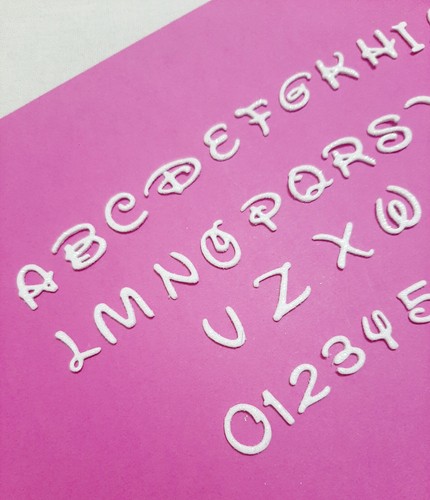 ABCDEFGKHI
LMNOPQRS
UZXW
012345